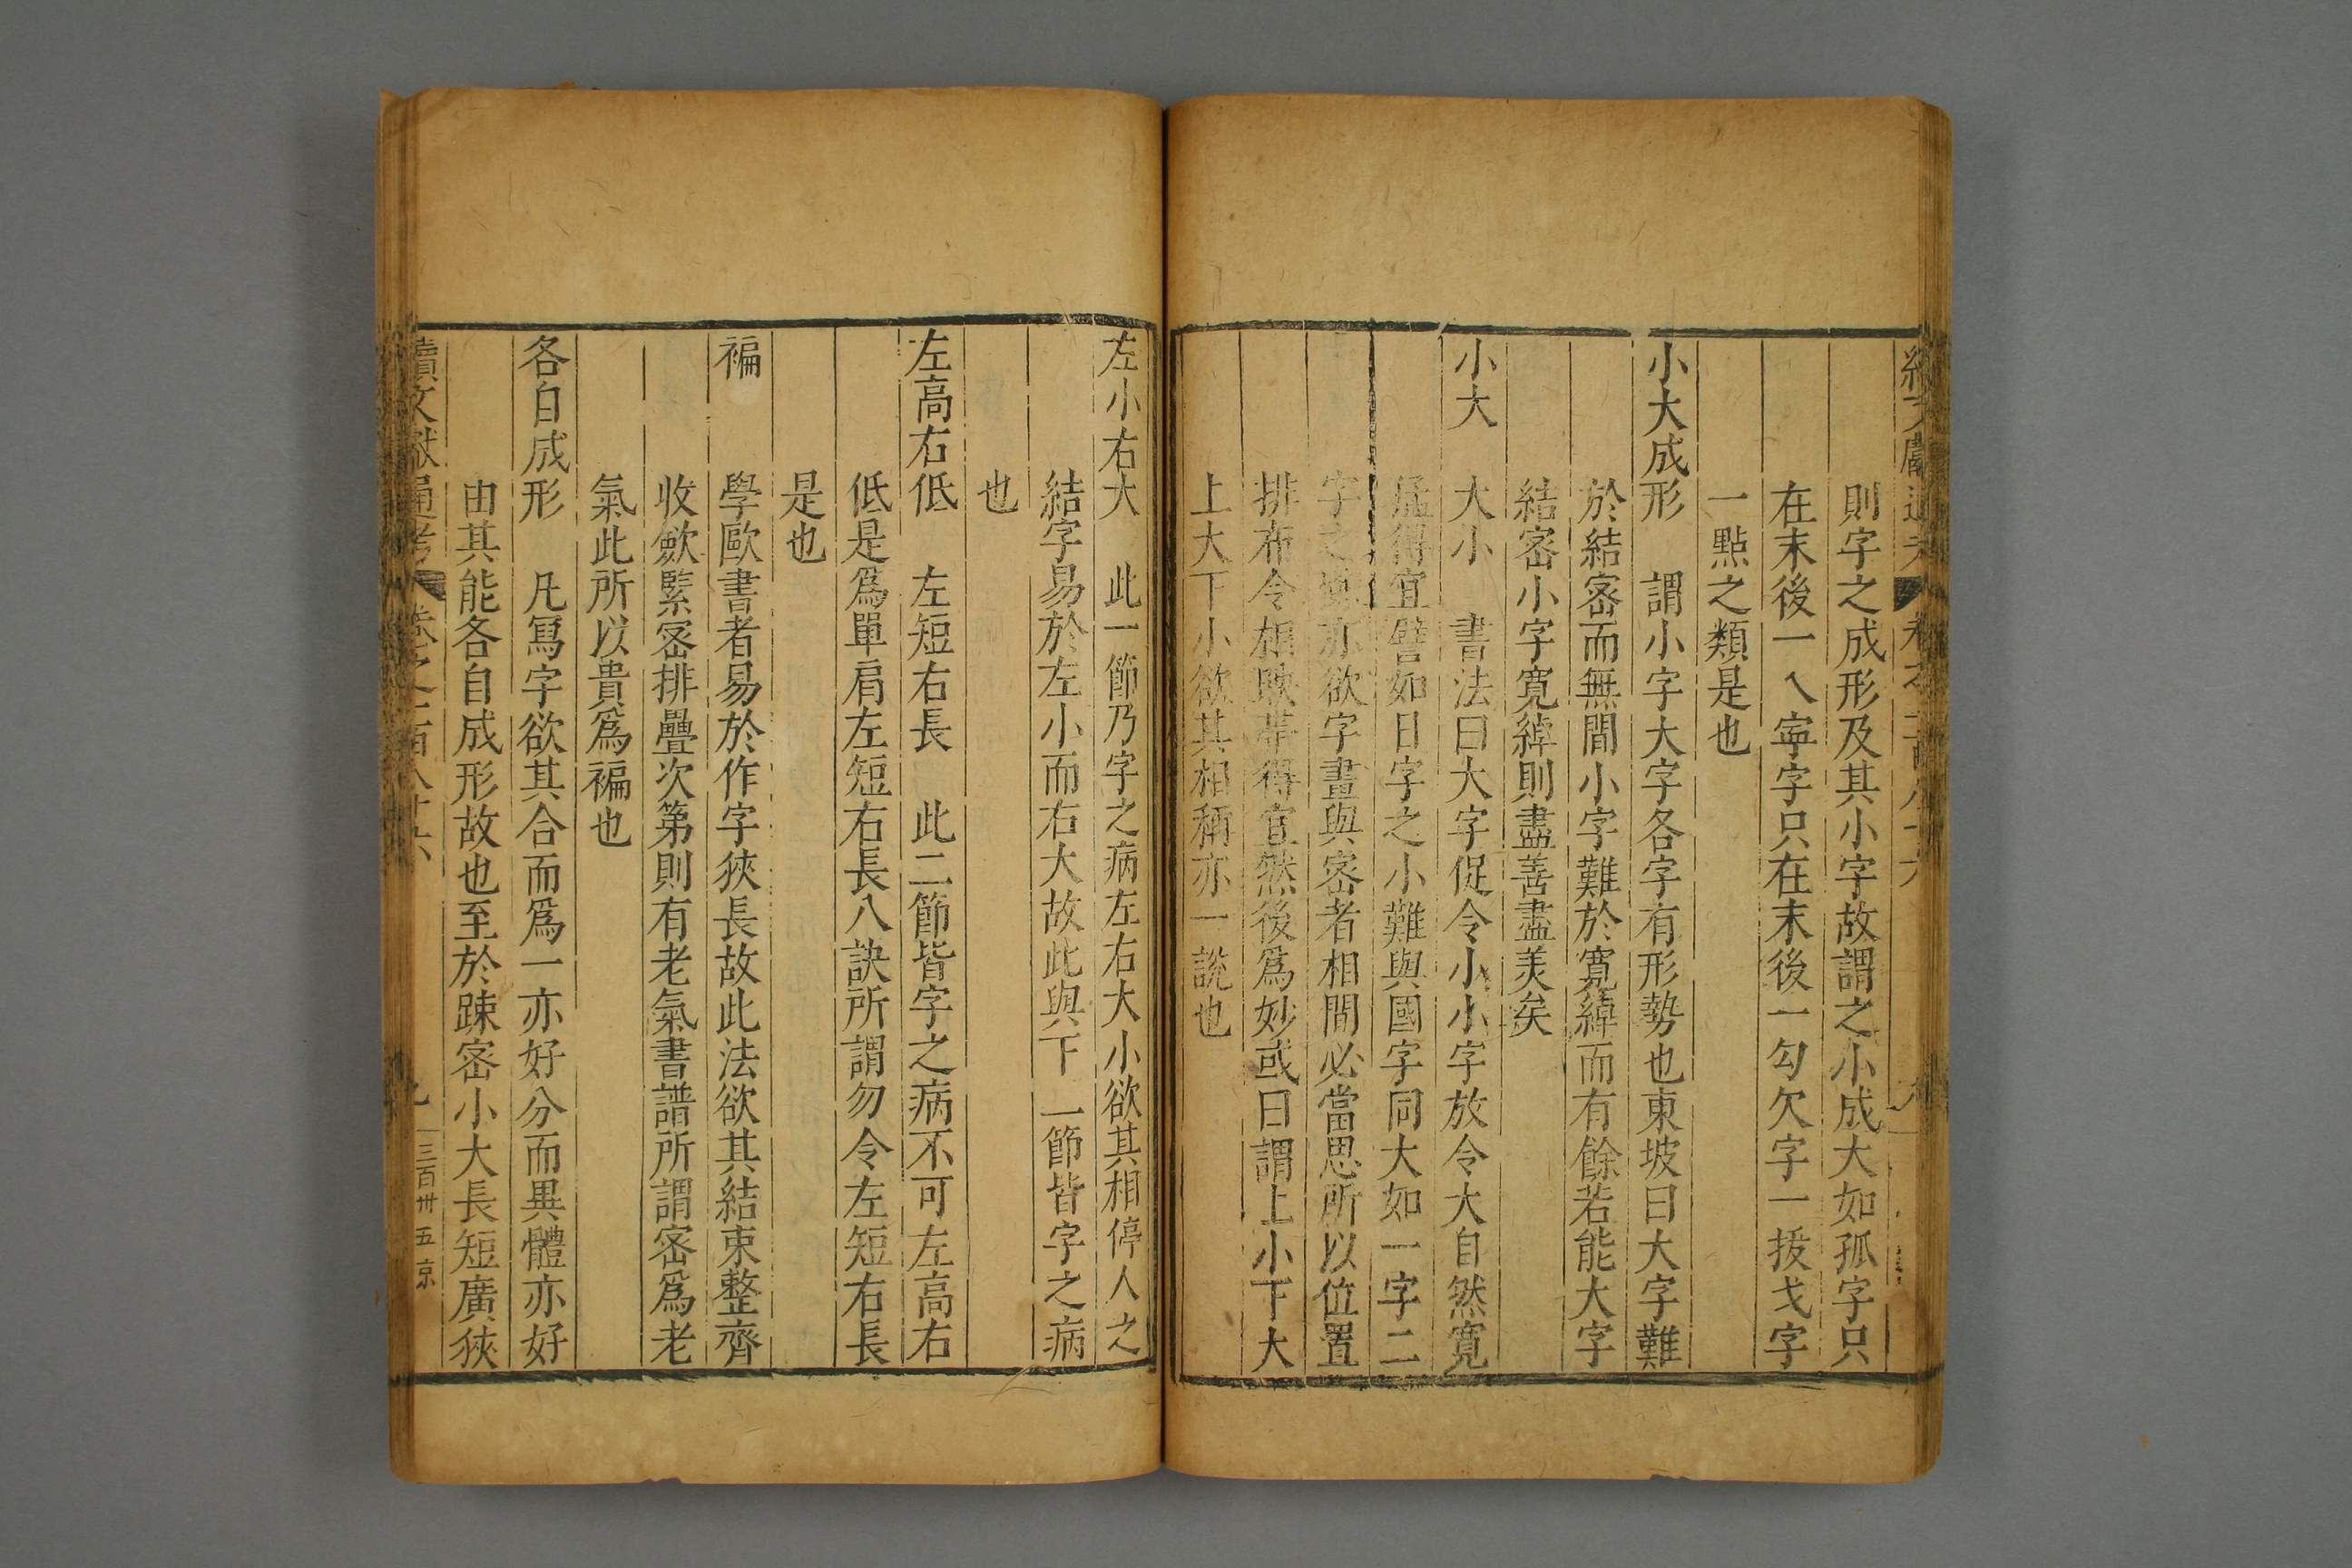 則字之成形及其小字故謂之小成大如孤字只
在末後一乀寜字只在末後一勾欠字一拔戈字
一㸃之類是也
小大成形　謂小字大字各字有形勢也東坡曰大字難
於結密而無間小字難於寬綽而有餘若能大字
結密小字寛綽則盡善盡美矣
小大　大小　書法曰大字促令小小字放令大自然寛
猛得宜譬如日字之小難與國字同大如一字二
字之踈亦欲字畫與密者相間必當思所以位置
排布令相映帶得宜然後爲妙或曰謂上小下大
上大下小欲其相稱亦一說也
左小右大　此一節乃字之病左右大小欲其相停人之
結字易於左小而右大故此與下　一節皆字之病
也
左高右低　左短右長　此二節皆字之病不可左高右
低是爲單肩左短右長八訣所謂勿令左短右長
是也
褊　學歐書者易於作字狹長故此法欲其結束整齊
收歛緊宻排疊次第則有老氣書譜所謂宻爲老
氣此所以貴爲褊也
各自成形　凡冩字欲其合而爲一亦好分而異體亦好
由其能各自成形故也至於踈宻小大長短廣狹
續文獻通考　卷之二百八十六　三百卅五　京